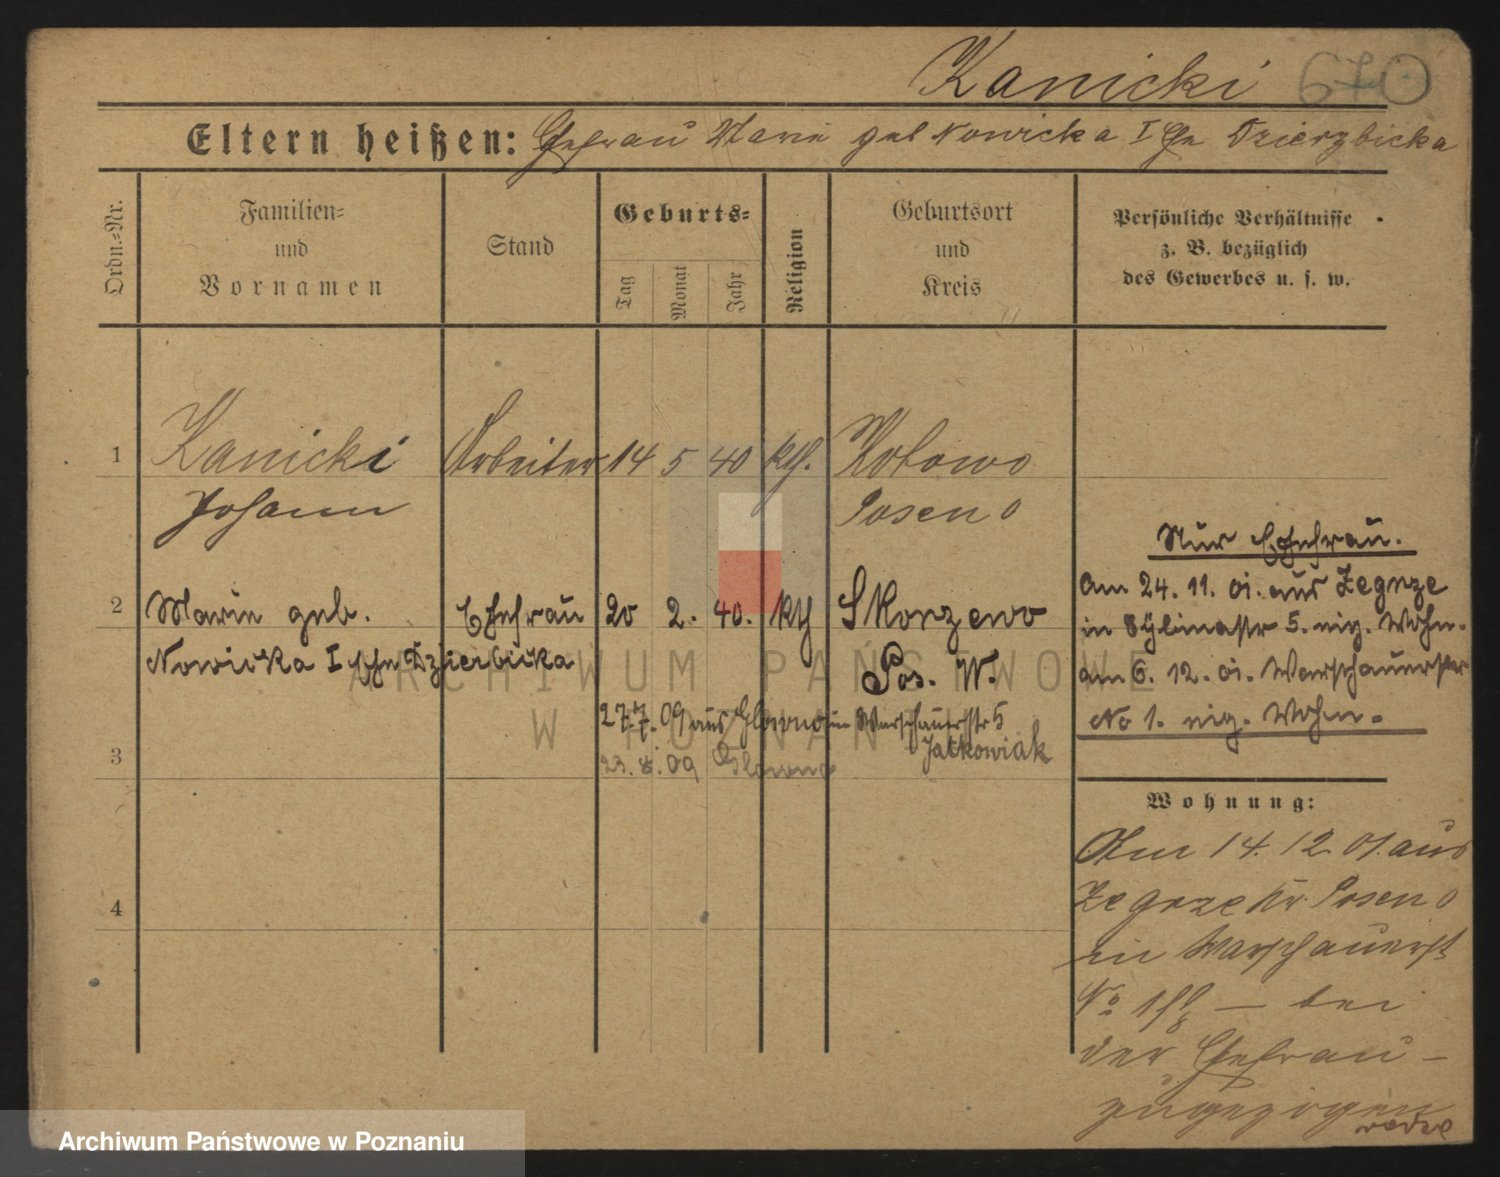 Kanicki 670
Eltern heißen: Ehefrau Marie geb Nowicka I Ehe Dzierzbicka
Ordn.-Nr.
Familien-
und
Vornamen
Stand
Geburts-
Tag
Monat
Jahr
Religion
Geburtsort
und
Kreis
Persönliche Verhältnisse
z. B. bezüglich
des Gewerbes u. s. w.
1 Kanicki Arbeiter 14 5 40 kth. Kotowo
Johann Posen O
2 Marie geb. Ehefrau 20 2. 40. kth Skorzewo
Nowicka I Ehe Dzierbicka Pos. W.
27.7.09 aus Glowno in Warschauerstr 5
Jatkowiak
3 23. 8. 09 Glowno
4
Nur Ehefrau.
Am 24. 11. 01. aus Zegrze
in 5. eig. Wohn.
am 6. 12. 01. Warschauerstr
No 1. eig. Wohn.
Wohnung:
Am 14. 12. 01. aus
Zegrze Kr. Posen O
in Warschauerst
No 1 — bei
der Ehefrau —
zugezogen
ARCHIWUM PAŃSTWOWE
W POZNANIU
Archiwum Państwowe w Poznaniu